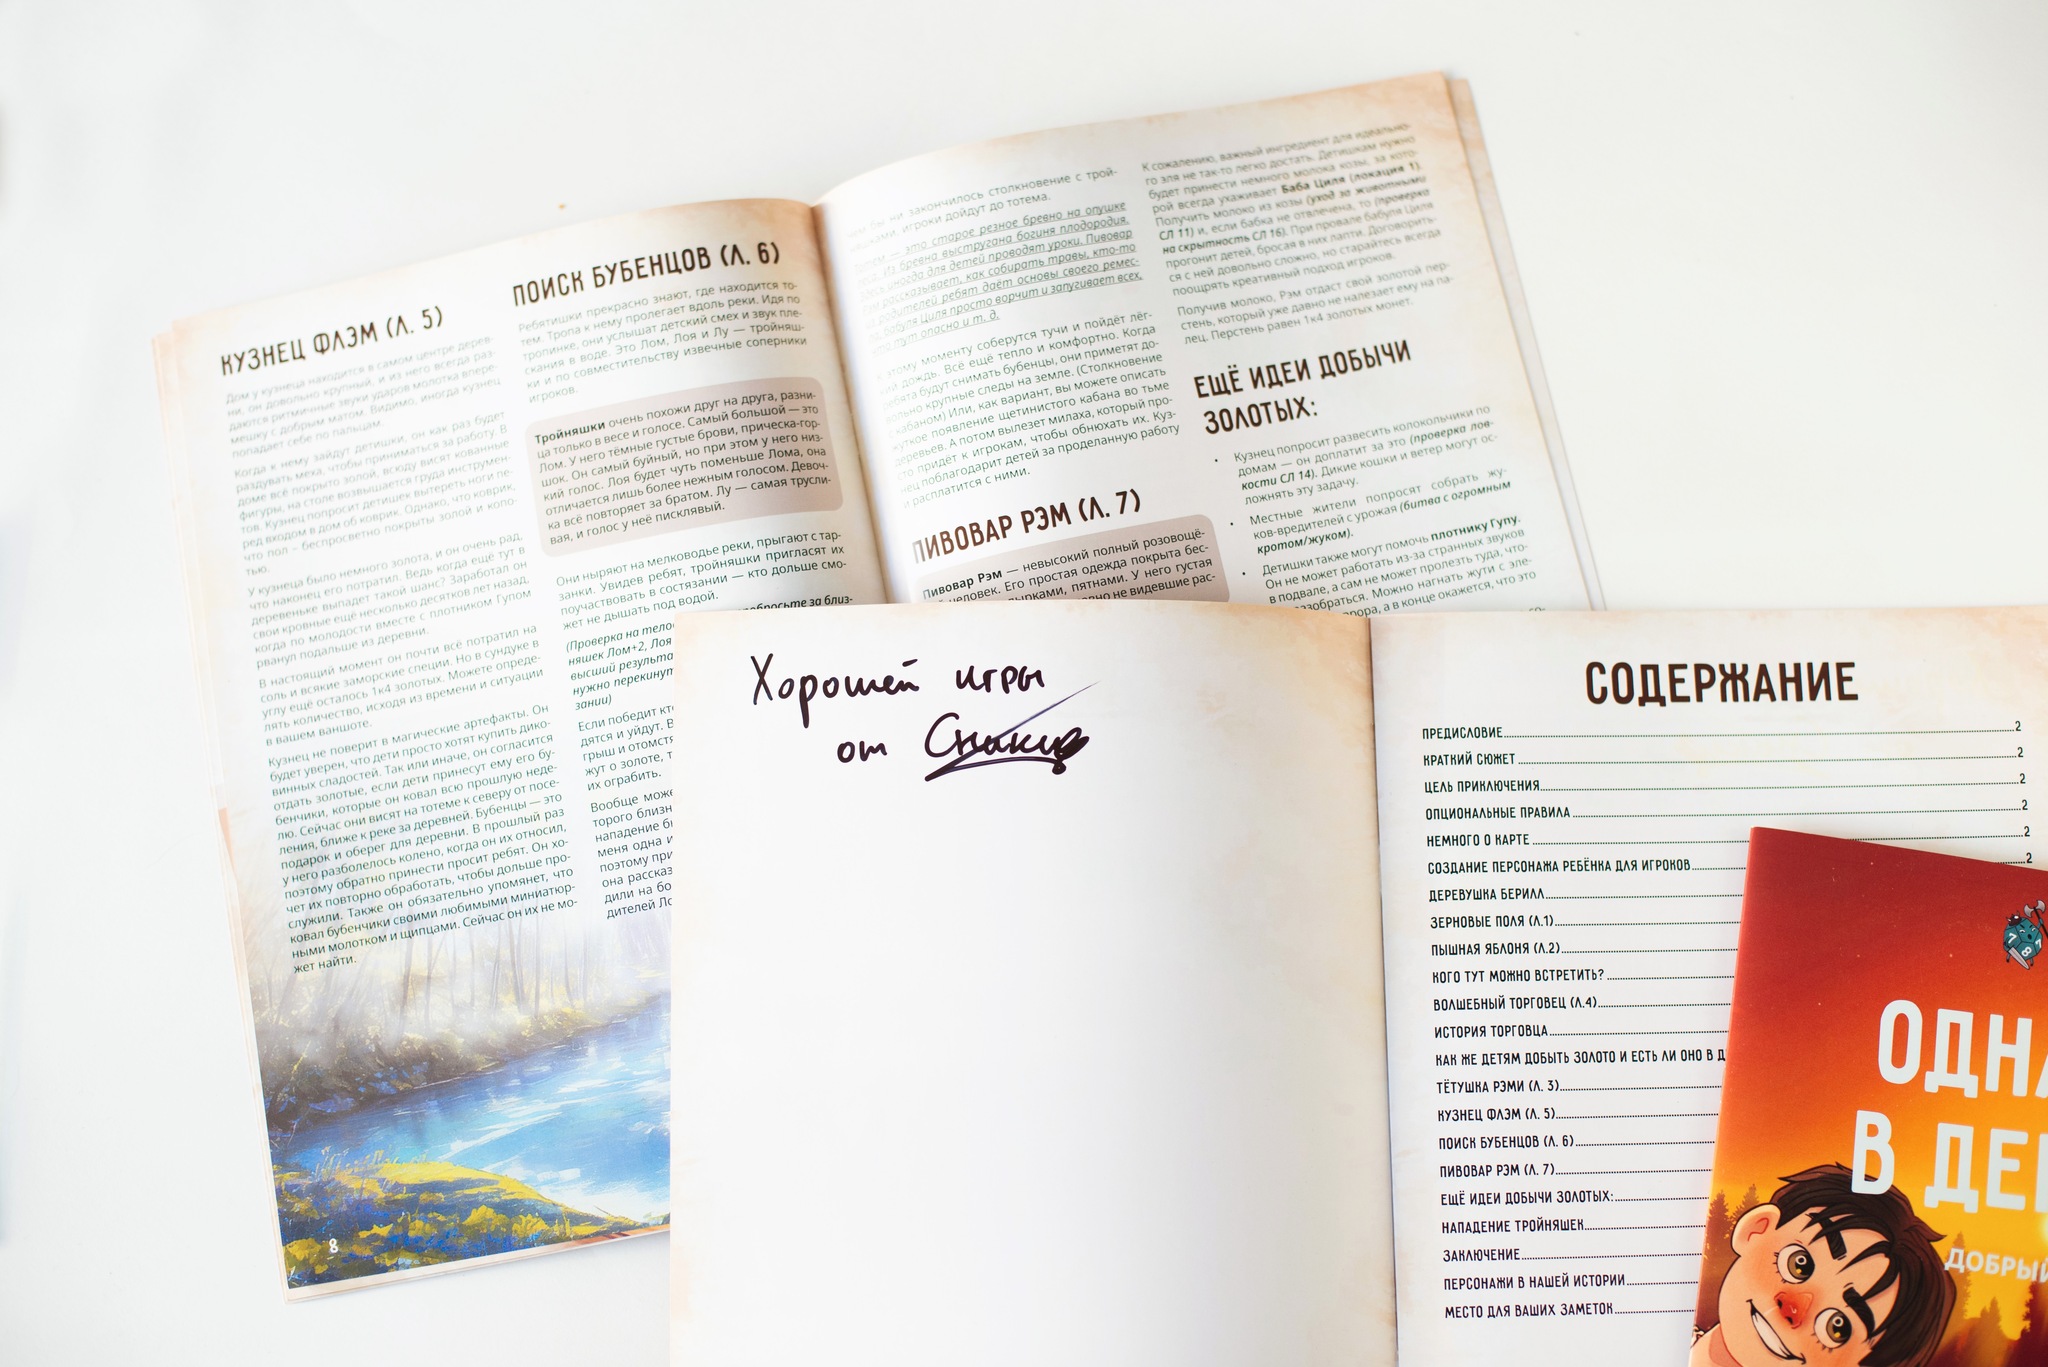 КУЗНЕЦ ФЛЭМ (Л. 5)
Дом у кузнеца находится в самом центре дерев-
ни, он довольно крупный, и из него всегда раз-
даются ритмичные звуки ударов молотка впере-
мешку с добрым матом. Видимо, иногда кузнец
попадает себе по пальцам.
Когда к нему зайдут детишки, он как раз будет
раздувать меха, чтобы приниматься за работу. В
доме всё покрыто золой, всюду висят кованные
фигуры, на столе возвышается груда инструмен-
тов. Кузнец попросит детишек вытереть ноги пе-
ред входом в дом об коврик. Однако, что коврик,
что пол – беспросветно покрыты золой и копо-
тью.
У кузнеца было немного золота, и он очень рад,
что наконец его потратил. Ведь когда ещё тут в
деревеньке выпадет такой шанс? Заработал он
свои кровные ещё несколько десятков лет назад,
когда по молодости вместе с плотником Гупом
рванул подальше из деревни.
В настоящий момент он почти всё потратил на
соль и всякие заморские специи. Но в сундуке в
углу ещё осталось 1к4 золотых. Можете опреде-
лять количество, исходя из времени и ситуации
в вашем ваншоте.
Кузнец не поверит в магические артефакты. Он
будет уверен, что дети просто хотят купить дико-
винных сладостей. Так или иначе, он согласится
отдать золотые, если дети принесут ему его бу-
бенчики, которые он ковал всю прошлую неде-
лю. Сейчас они висят на тотеме к северу от посе-
ления, ближе к реке за деревней. Бубенцы — это
подарок и оберег для деревни. В прошлый раз
у него разболелось колено, когда он их относил,
поэтому обратно принести просит ребят. Он хо-
чет их повторно обработать, чтобы дольше про-
служили. Также он обязательно упомянет, что
ковал бубенчики своими любимыми миниатюр-
ными молотком и щипцами. Сейчас он их не мо-
жет найти.
8
ПОИСК БУБЕНЦОВ (Л. 6)
Ребятишки прекрасно знают, где находится то-
тем. Тропа к нему пролегает вдоль реки. Идя по
тропинке, они услышат детский смех и звук пле-
скания в воде. Это Лом, Лоя и Лу — тройняш-
ки и по совместительству извечные соперники
игроков.
Тройняшки очень похожи друг на друга, разни-
ца только в весе и голосе. Самый большой — это
Лом. У него тёмные густые брови, прическа-гор-
шок. Он самый буйный, но при этом у него низ-
кий голос. Лоя будет чуть поменьше Лома, она
отличается лишь более нежным голосом. Девоч-
ка всё повторяет за братом. Лу — самая трусли-
вая, и голос у неё писклявый.
Они ныряют на мелководье реки, прыгают с тар-
занки. Увидев ребят, тройняшки пригласят их
поучаствовать в состязании — кто дольше смо-
жет не дышать под водой.
(Проверка на тело
бросьте за близ-
няшек Лом+2, Лоя
высший результа
нужно перекинут
зании)
Если победит кт
дятся и уйдут. В
грыш и отомстя
жут о золоте, т
их ограбить.
Вообще може
торого близн
нападение бы
меня одна и
поэтому при
она рассказ
дили на бо
дителей Ло
чем бы ни закончилось столкновение с трой-
няшками, игроки дойдут до тотема.
Тотем — это старое резное бревно на опушке
леса. Из бревна выстругана богиня плодородия.
Здесь иногда для детей проводят уроки. Пивовар
Рэм рассказывает, как собирать травы, кто-то
из родителей ребят даёт основы своего ремес-
ла, бабуля Циля просто ворчит и запугивает всех,
что тут опасно и т. д.
К этому моменту соберутся тучи и пойдёт лёг-
кий дождь. Всё ещё тепло и комфортно. Когда
ребята будут снимать бубенцы, они приметят до-
вольно крупные следы на земле. (Столкновение
с кабаном) Или, как вариант, вы можете описать
жуткое появление щетинистого кабана во тьме
деревьев. А потом вылезет милаха, который про-
сто придёт к игрокам, чтобы обнюхать их. Куз-
нец поблагодарит детей за проделанную работу
и расплатится с ними.
ПИВОВАР РЭМ (Л. 7)
Пивовар Рэм — невысокий полный розовощё-
кий человек. Его простая одежда покрыта бес-
дырками, пятнами. У него густая
давно не видевшие рас-
К сожалению, важный ингредиент для идеально-
го эля не так-то легко достать. Детишкам нужно
будет принести немного молока козы, за кото-
рой всегда ухаживает Баба Циля (локация 1).
Получить молоко из козы (уход за животными
СЛ 11) и, если бабка не отвлечена, то (проверка
на скрытность СЛ 16). При провале бабуля Циля
прогонит детей, бросая в них лапти. Договорить-
ся с ней довольно сложно, но старайтесь всегда
поощрять креативный подход игроков.
Получив молоко, Рэм отдаст свой золотой пер-
стень, который уже давно не налезает ему на па-
лец. Перстень равен 1к4 золотых монет.
ЕЩЁ ИДЕИ ДОБЫЧИ
ЗОЛОТЫХ:
• Кузнец попросит развесить колокольчики по
домам — он доплатит за это (проверка лов-
кости СЛ 14). Дикие кошки и ветер могут ос-
ложнять эту задачу.
• Местные жители попросят собрать жу-
ков-вредителей с урожая (битва с огромным
кротом/жуком).
• Детишки также могут помочь плотнику Гупу.
Он не может работать из-за странных звуков
в подвале, а сам не может пролезть туда, что-
разобраться. Можно нагнать жути с эле-
рора, а в конце окажется, что это
Хорошей игры
от
СОДЕРЖАНИЕ
ПРЕДИСЛОВИЕ 2
КРАТКИЙ СЮЖЕТ 2
ЦЕЛЬ ПРИКЛЮЧЕНИЯ 2
ОПЦИОНАЛЬНЫЕ ПРАВИЛА 2
НЕМНОГО О КАРТЕ 2
СОЗДАНИЕ ПЕРСОНАЖА РЕБЁНКА ДЛЯ ИГРОКОВ 2
ДЕРЕВУШКА БЕРИЛЛ
ЗЕРНОВЫЕ ПОЛЯ (Л.1)
ПЫШНАЯ ЯБЛОНЯ (Л.2)
КОГО ТУТ МОЖНО ВСТРЕТИТЬ?
ВОЛШЕБНЫЙ ТОРГОВЕЦ (Л.4)
ИСТОРИЯ ТОРГОВЦА
КАК ЖЕ ДЕТЯМ ДОБЫТЬ ЗОЛОТО И ЕСТЬ ЛИ ОНО В Д
ТЁТУШКА РЭМИ (Л. 3)
КУЗНЕЦ ФЛЭМ (Л. 5)
ПОИСК БУБЕНЦОВ (Л. 6)
ПИВОВАР РЭМ (Л. 7)
ЕЩЁ ИДЕИ ДОБЫЧИ ЗОЛОТЫХ:
НАПАДЕНИЕ ТРОЙНЯШЕК
ЗАКЛЮЧЕНИЕ
ПЕРСОНАЖИ В НАШЕЙ ИСТОРИИ
МЕСТО ДЛЯ ВАШИХ ЗАМЕТОК
ОДНА
В ДЕ
ДОБРЫЙ